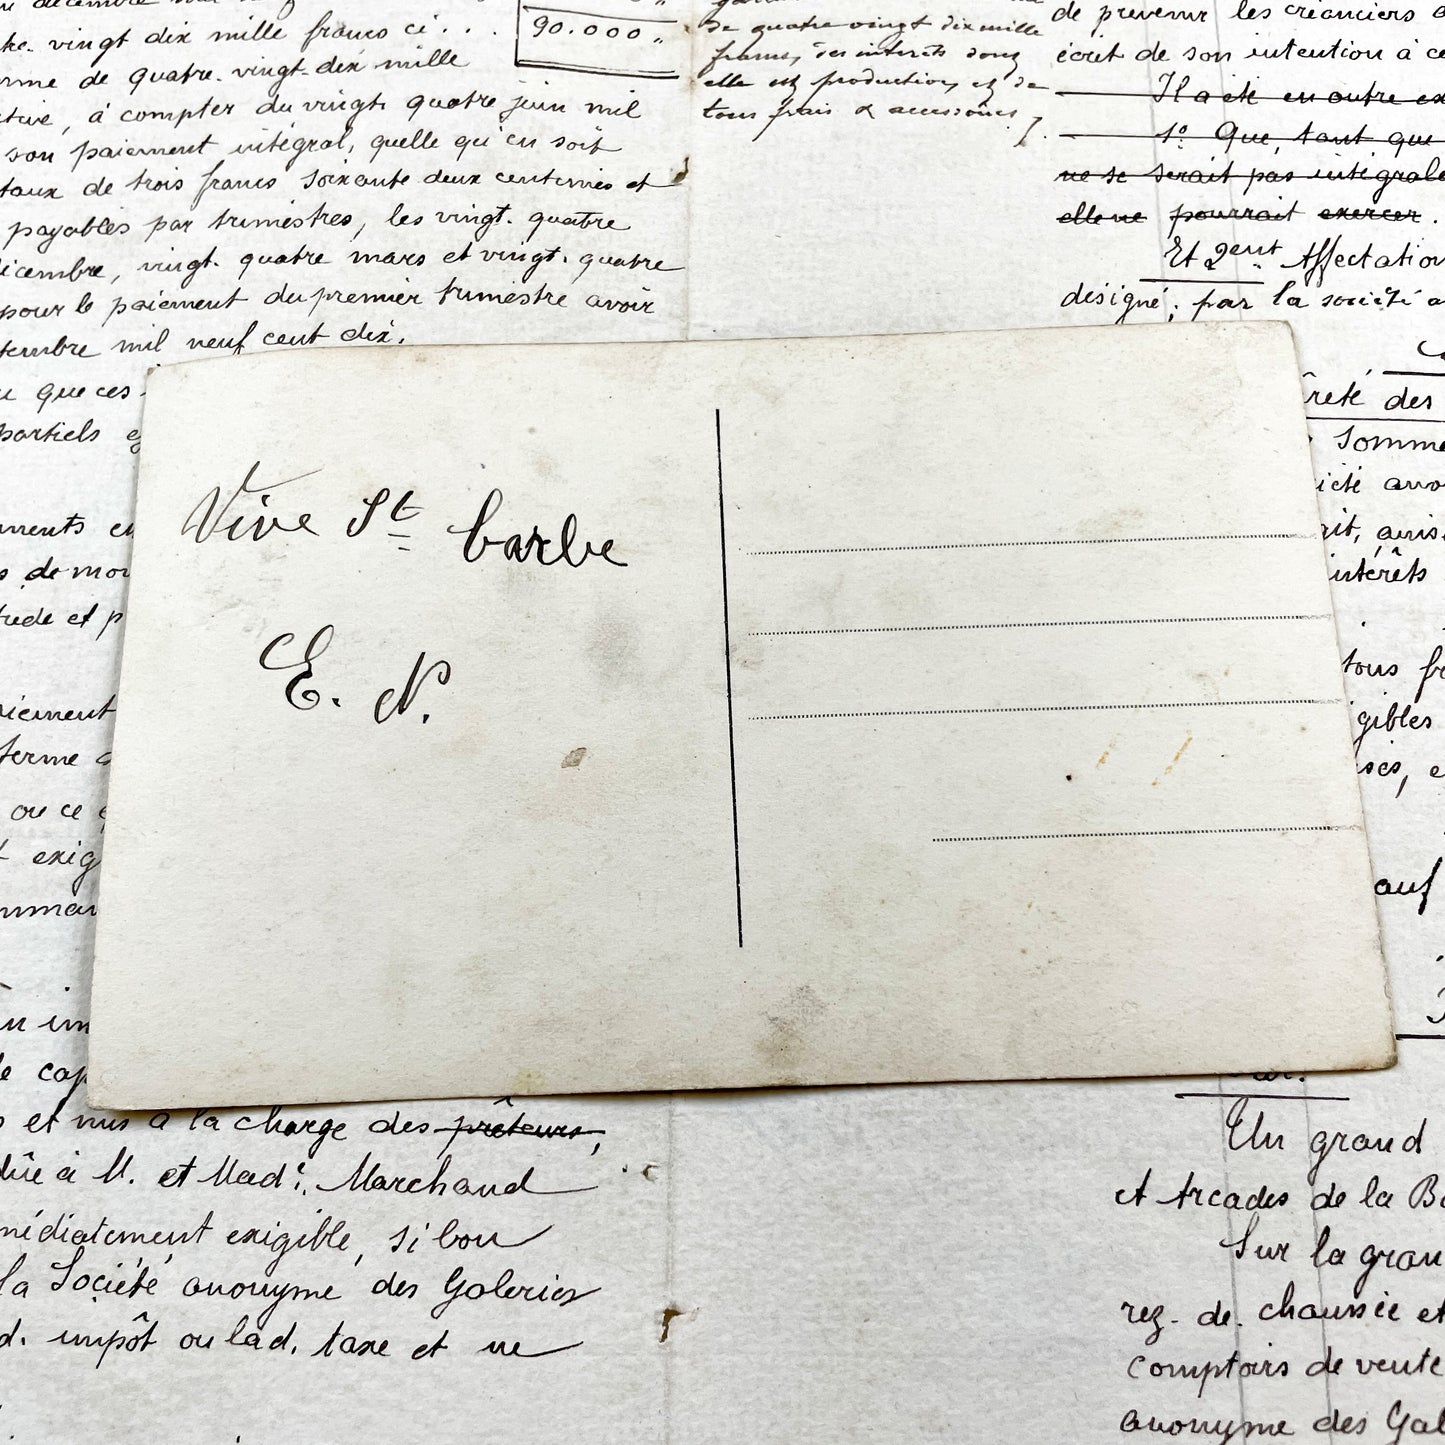 90.000 "
vingt dix mille francs ci . . .
de quatre-vingt-dix mille
à compter du vingt quatre juin mil
son paiement intégral, quelle qu'en soit
taux de trois francs soixante deux centimes et
payables par trimestres, les vingt-quatre
décembre, vingt-quatre mars et vingt-quatre
pour le paiement du premier trimestre avoir
septembre mil neuf cent dix.
que ces
partiels
de quatre vingt dix mille
francs, des intérêts dont
elle est production, et de
tous frais & accessoires
de prévenir les créanciers
écrit de son intention à
Il a été en outre
1° Que, tant que
ne se serait pas
elle ne pourrait exercer.
Et 2ent Affectation
désigné; par la société
des
Somme
Vive St barbe
E. N.
ments
de
et
paiement
terme
ou ce
exig
intérêts
tous
gibles
et mis à la charge des prêteurs,
dûe à M. et Made. Marchand
immédiatement exigible, si bon
la Société anonyme des Galeries
d. impôt ou lad. taxe et ne
Un grand
et Arcades de la
Sur la
rez-de-chaussée et
comptoirs de vente
anonyme des Gal